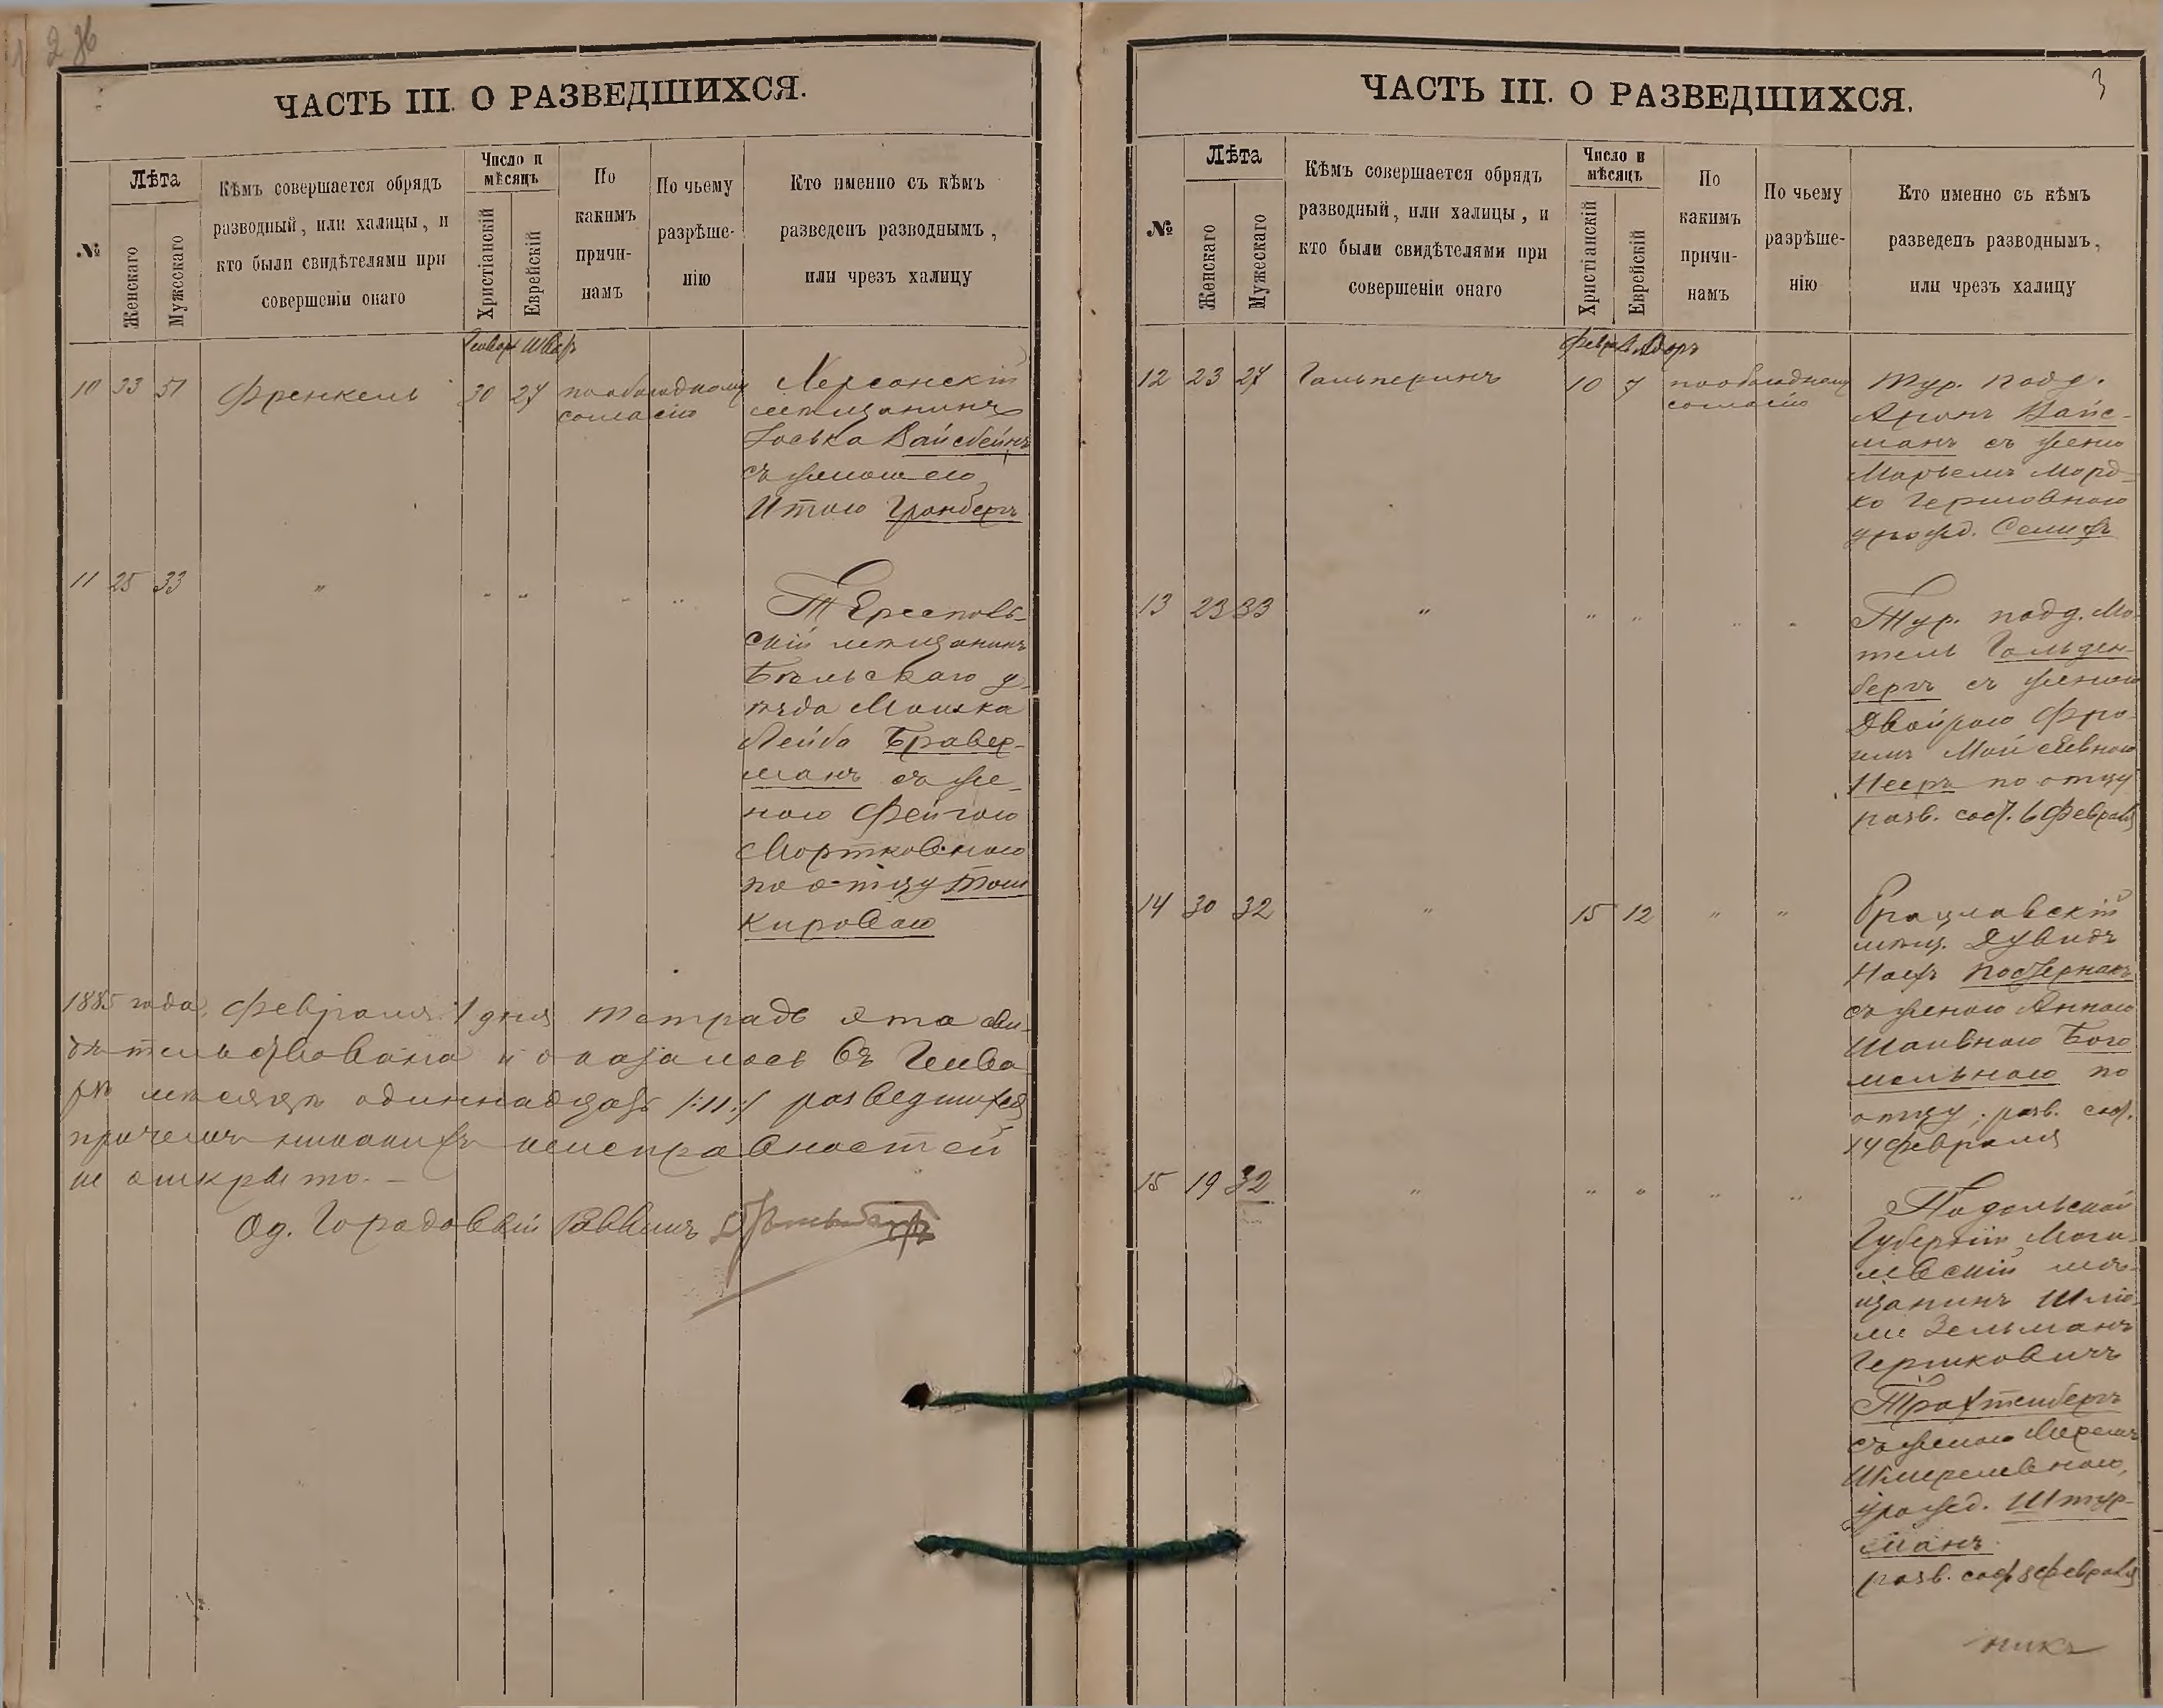 2 об
ЧАСТЬ III. О РАЗВЕДШИХСЯ.
№
Лѣта
Женскаго
Мужескаго
Кѣмъ совершается обрядъ
разводный, или халицы, и
кто были свидѣтелями при
совершеніи онаго
Число и
мѣсяцъ
Христіанскій
Еврейскій
По
какимъ
причи-
намъ
По чьему
разрѣше-
нію
Кто именно съ кѣмъ
разведенъ разводнымъ,
или чрезъ халицу
Январ Шватъ
10 33 51 Френкель 30 27 по обоюдному
согласію
Херсонскій
мѣщанинъ
Іоська Вайсбейнъ
съ женою его
Итою Гранбергъ
11 25 33 " " " " "
Тереспов-
скій мѣщанинъ
Бѣльскаго у-
ѣзда Мошка
Лейба Бравер-
манъ съ же-
ною Фейгою
Мортковною
по отцу Тош
кировою
1885 года, Февраля 1 дня тетрадь эта сви-
дѣтельствована и оказалось въ Генва
рѣ мѣсяцѣ одиннадцать /:11:/ разведшихся
причемъ никакихъ неисправностей
не открыто. —
Од. Городовой Раввинъ
3
ЧАСТЬ III. О РАЗВЕДШИХСЯ.
№
Лѣта
Женскаго
Мужескаго
Кѣмъ совершается обрядъ
разводный, или халицы, и
кто были свидѣтелями при
совершеніи онаго
Число и
мѣсяцъ
Христіанскій
Еврейскій
По
какимъ
причи-
намъ
По чьему
разрѣше-
нію
Кто именно съ кѣмъ
разведенъ разводнымъ,
или чрезъ халицу
Февра Адоръ
12 23 27 Гальперинъ 10 7 по обоюдному
согласію
Тур. подд.
Аронъ Вайс-
манъ съ жено
Марьемъ Морд-
ко Гершовною
урожд. Семифъ
13 23 33 " " " " "
Тур. подд. Мо-
тель Гольден-
бергъ съ женою
Двойрою Фру-
имъ Мойсеевною
Нееръ по отцу
разв. сост. 6 Февраля
14 30 32 " 15 12 " "
Брацлавскій
мѣщ. Дувидъ
Ноехъ Постернакъ
съ женою Анною
Шаивною Бого
мольною по
отцу. разв. сост.
14 Февраля
15 19 32 " " " " "
Подольской
Губерніи Моги-
левскій мѣ-
щанинъ Шлю-
ме Зельманъ
Гершковичъ
Трахтенбергъ
съ женою Мирелъ
Шмерелевною,
урожд. Штур-
манъ
разв. сост. 8 Февраля